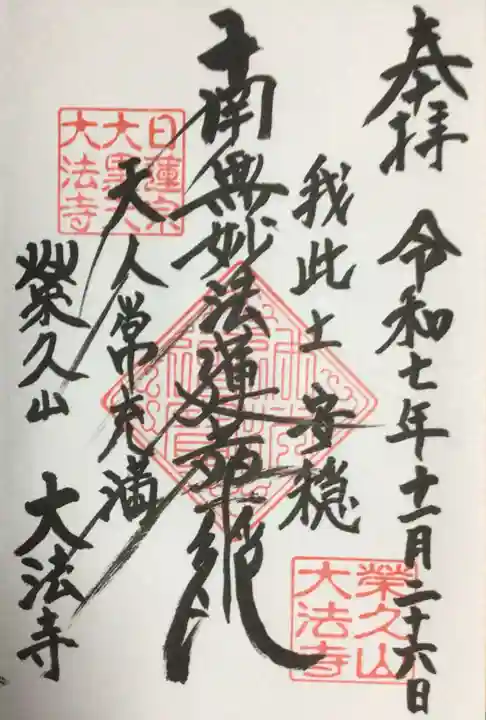 奉拝
令和七年十一月二十六日
我此土安穏
南無妙法蓮華経
天人常充満
榮久山
大法寺
日蓮宗
大黒天
大法寺
榮久山
大法寺